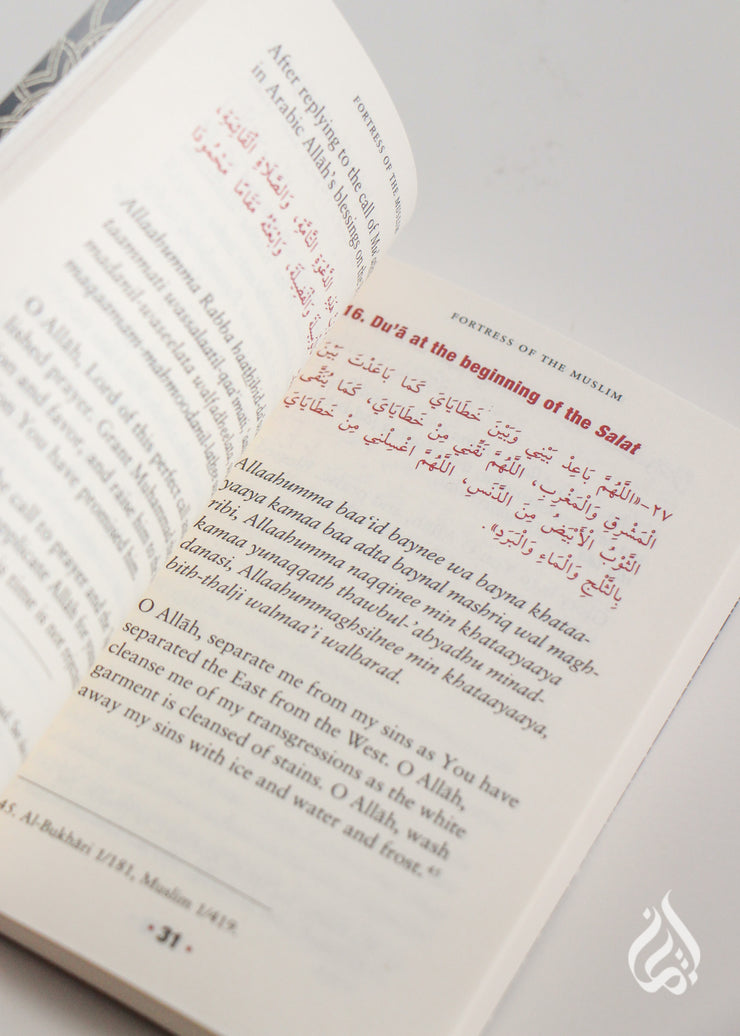 FORTRESS OF THE MUSLIM
After replying to the call of
in Arabic Allāh's blessings on the
الدَّعْوَةِ التَّامَّةِ، وَالصَّلَاةِ الْقَائِمَةِ،
وَالْفَضِيلَةَ، وَابْعَثْهُ مَقَامًا مَحْمُودًا
Allaahumma Rabba haathihid-da
taammati wassalaatil-qaa'imati,
madanil-waseelata walfadheelata
maqaamam-mahmoodanil-lathee
O Allāh, Lord of this perfect call
lished prayer. Grant Muhammad
on and favor, and raise him to
om You have promised him
he call to prayer and the
pplicate Allāh for
time is not
FORTRESS OF THE MUSLIM
16. Du'ā at the beginning of the Salat
٢٧-«اللَّهُمَّ بَاعِدْ بَيْنِي وَبَيْنَ خَطَايَايَ كَمَا بَاعَدْتَ بَيْنَ
الْمَشْرِقِ وَالْمَغْرِبِ، اللَّهُمَّ نَقِّنِي مِنْ خَطَايَايَ، كَمَا يُنَقَّى
الثَّوْبُ الْأَبْيَضُ مِنَ الدَّنَسِ، اللَّهُمَّ اغْسِلْنِي مِنْ خَطَايَايَ
بِالثَّلْجِ وَالْمَاءِ وَالْبَرَدِ».
Allaahumma baa'id baynee wa bayna khataa-
yaaya kamaa baa adta baynal mashriq wal magh-
ribi, Allaahumma naqqinee min khataayaaya
kamaa yunaqqath thawbul-'abyadhu minad-
danasi, Allaahummaghsilnee min khataayaaya,
bith-thalji walmaa'i walbarad.
O Allāh, separate me from my sins as You have
separated the East from the West. O Allāh,
cleanse me of my transgressions as the white
garment is cleansed of stains. O Allāh, wash
away my sins with ice and water and frost.⁴⁵
45. Al-Bukhāri 1/181, Muslim 1/419.
• 31 •